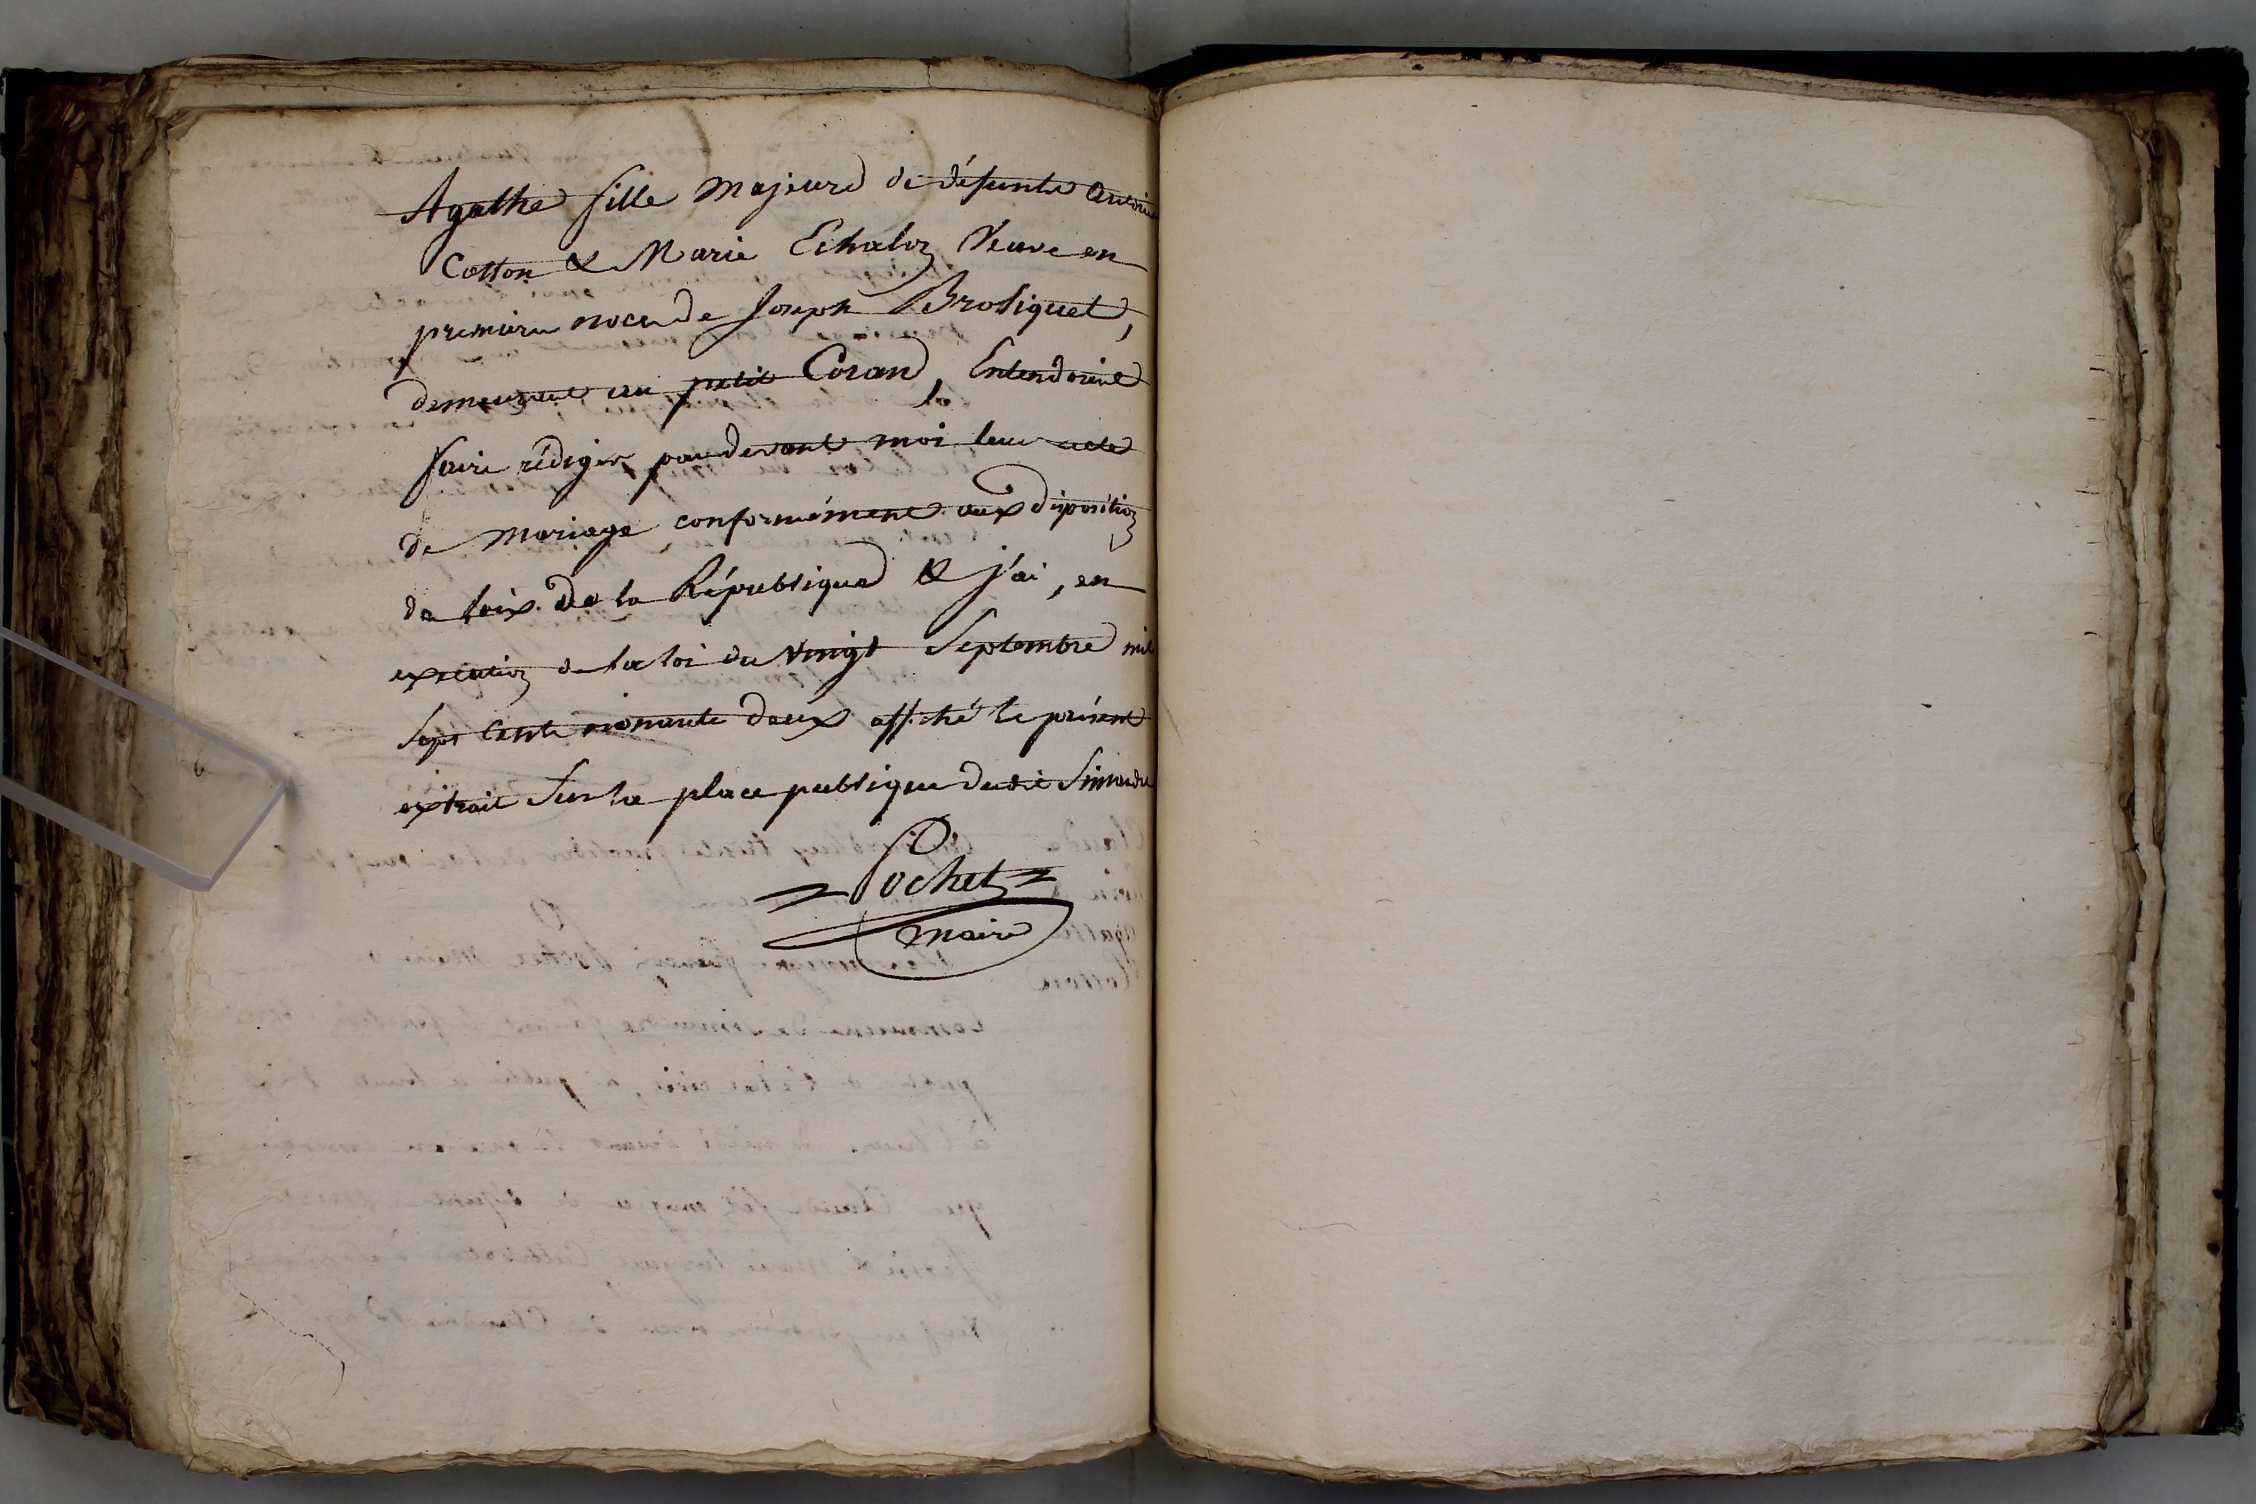 Agathe fille Majeure de défunts Antoine
Cotton & Marie Echaloz Veuve en
premiere noces de Joseph Brotiquet,
demeurant au petit Corand, Entendoient
faire rédiger pardevant moi leur acte
de Mariage conformément aux disposition
des loix de la République & j'ai, en
execution de la loi du vingt Septembre mil
Sept Cent nonante deux affiché le présent
extrait Sur la place publique dudit Simandre
Pochet
maire